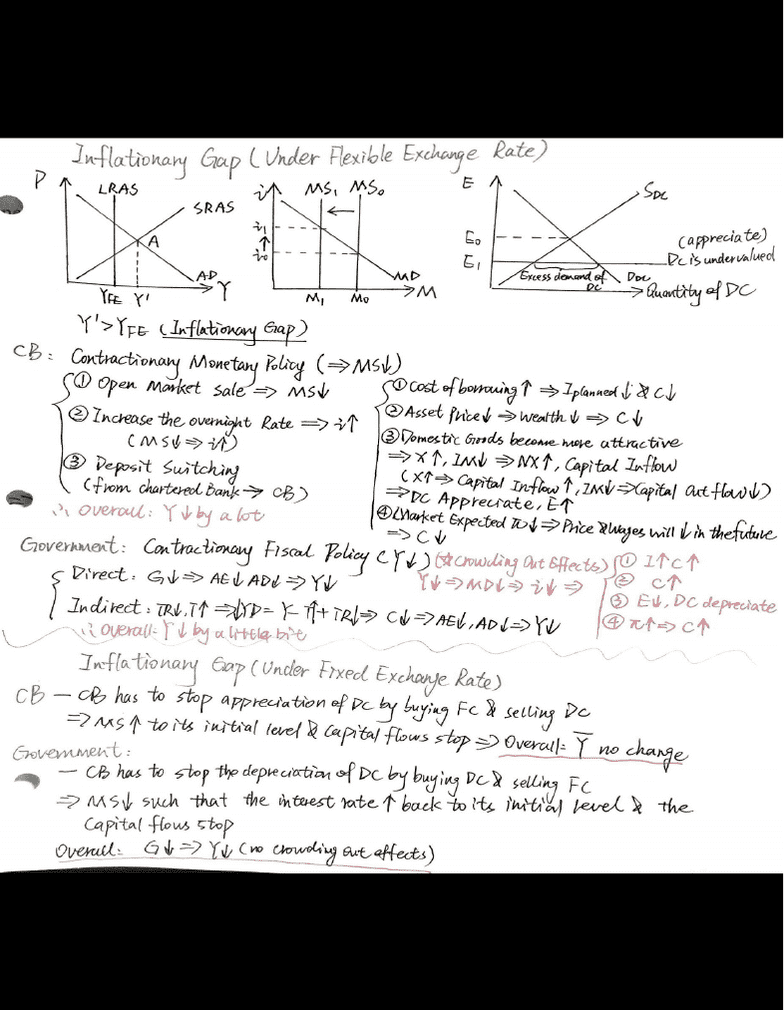 Inflationary Gap (Under Flexible Exchange Rate)
P LRAS SRAS A AD YFE Y' Y
i MS₁ MS₀ i₁ ↑ i₀ MD M₁ M₀ M
E SDC E₀ E₁ (appreciate) DC is undervalued Excess demand of DC DDC Quantity of DC
Y'>YFE (Inflationary Gap)
CB: Contractionary Monetary Policy (⇒MS↓)
① Open Market Sale ⇒ MS↓
② Increase the overnight Rate ⇒ i↑
(MS↓⇒i↑)
③ Deposit Switching
(from chartered Bank → CB)
∴ Overall: Y↓ by a lot
① Cost of borrowing ↑ ⇒ Iplanned ↓ & C↓
② Asset Price↓ ⇒ Wealth ↓ ⇒ C↓
③ Domestic Goods become more attractive
⇒ X↑, IM↓ ⇒ NX↑, Capital Inflow
(X↑⇒ Capital Inflow ↑, IM↓⇒Capital Outflow↓)
⇒ DC Appreciate, E↑
④ (Market Expected π↓ ⇒ Price & Wages will ↓ in the future
⇒ C↓
Government: Contractionary Fiscal Policy (Y↓) (☆Crowding Out Effects)
Direct: G↓ ⇒ AE↓ AD↓ ⇒ Y↓
Indirect: TR↓, T↑ ⇒ ↓YD = Y - T↑ + TR↓ ⇒ C↓ ⇒ AE↓, AD↓ ⇒ Y↓
∴ Overall: Y↓ by a little bit
Y↓ ⇒ MD↓ ⇒ i↓ ⇒
① I↑ C↑
② C↑
③ E↓, DC depreciate
④ π↑ ⇒ C↑
Inflationary Gap (Under Fixed Exchange Rate)
CB — CB has to stop appreciation of DC by buying FC & selling DC
⇒ MS↑ to its initial level & Capital flows stop ⇒ Overall: Y̅ no change
Government:
— CB has to stop the depreciation of DC by buying DC & selling FC
⇒ MS↓ such that the interest rate ↑ back to its initial level & the
Capital flows stop
Overall: G↓ ⇒ Y↓ (no crowding out effects)